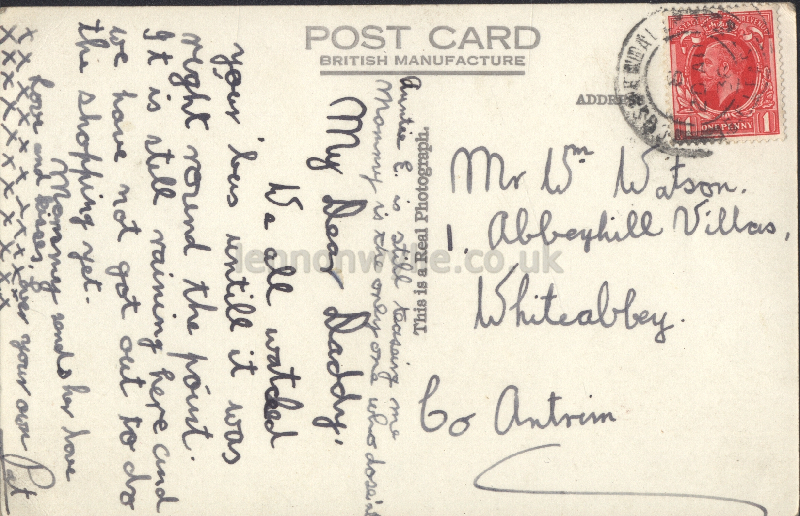 POST CARD
BRITISH MANUFACTURE
ADDRESS
ONE PENNY 1
Mr Wm Watson.
1. Abbeyhill Villas,
Whiteabbey.
Co Antrim
This is a Real Photograph.
lennonwylie.co.uk
My Dear Daddy,
We all watched
your 'bus untill it was
right round the point.
It is still raining here and
we have not got out to do
the shopping yet.
Mommy sends her love
love and kisses from your own Pat
X X X X X X X X X X
X X X X X X X X X X
Auntie E. is still teaseing me
Mommy is the only one who doseint